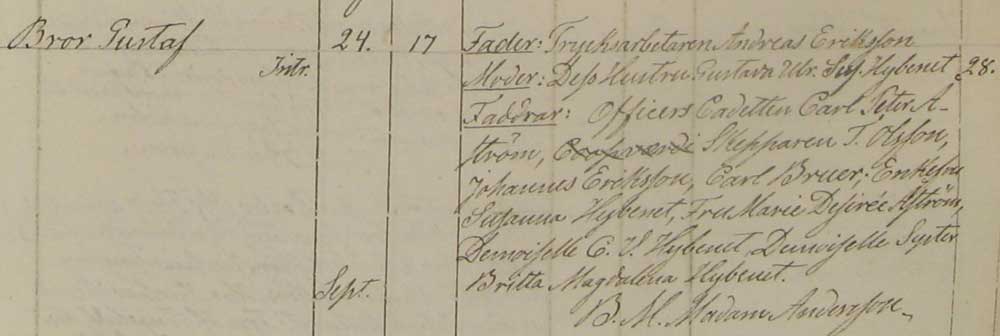 Bror Gustaf 24. 17 Fader: Trycksarbetaren Andreas Eriksson
Intr. Moder: Dess Hustru Gustava Ulr. Sus. Hybenet 28.
Faddrar: Officers Cadetten Carl Peter A-
ström, Skepparen T. Olsson,
Johannes Eriksson, Carl Bruer; Enkefru
Susanna Hybenet, Fru Marie Desirée Aström,
Demoiselle C. S. Hybenet, Demoiselle
Sept. Britta Magdalena Hybenet.
B. M. Madam Andersson